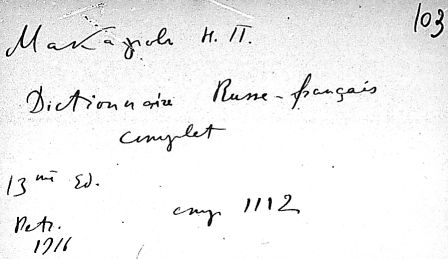 103
Макаров Н. П.
Dictionnaire Russe-français
complet
13me Ed.
стр. 1112
Petr.
1916